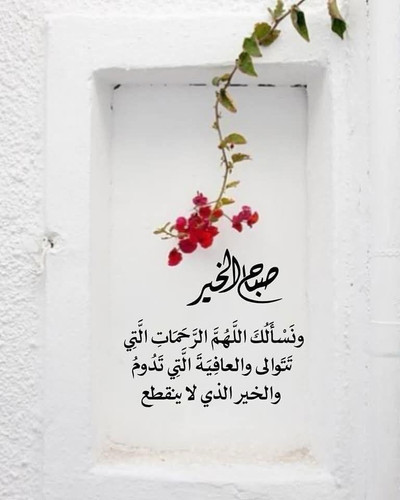 صباح الخير
ونَسْأَلُكَ اللَّهُمَّ الرَّحَمَاتِ الَّتِي
تَتَوالى والعافِيَةَ الَّتِي تَدُومُ
والخير الذي لا ينقطع